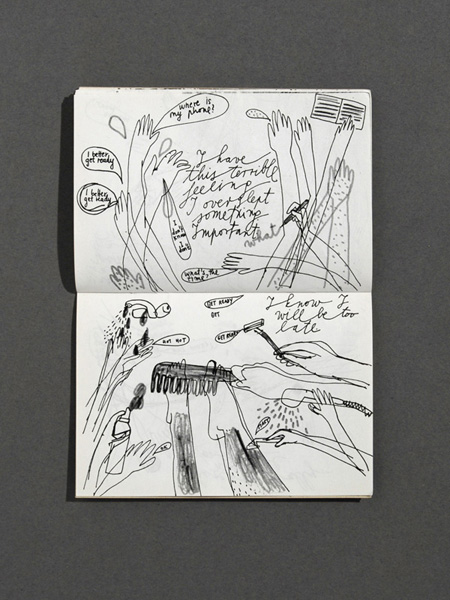 where is
my phone?
I better
get ready
I better
get ready
I have
this terrible
feeling
I overslept
something
Important
what
I
don't
know
I
don't
What's the
time?
GET READY
GET
I know I
will be too
late
HOT HOT